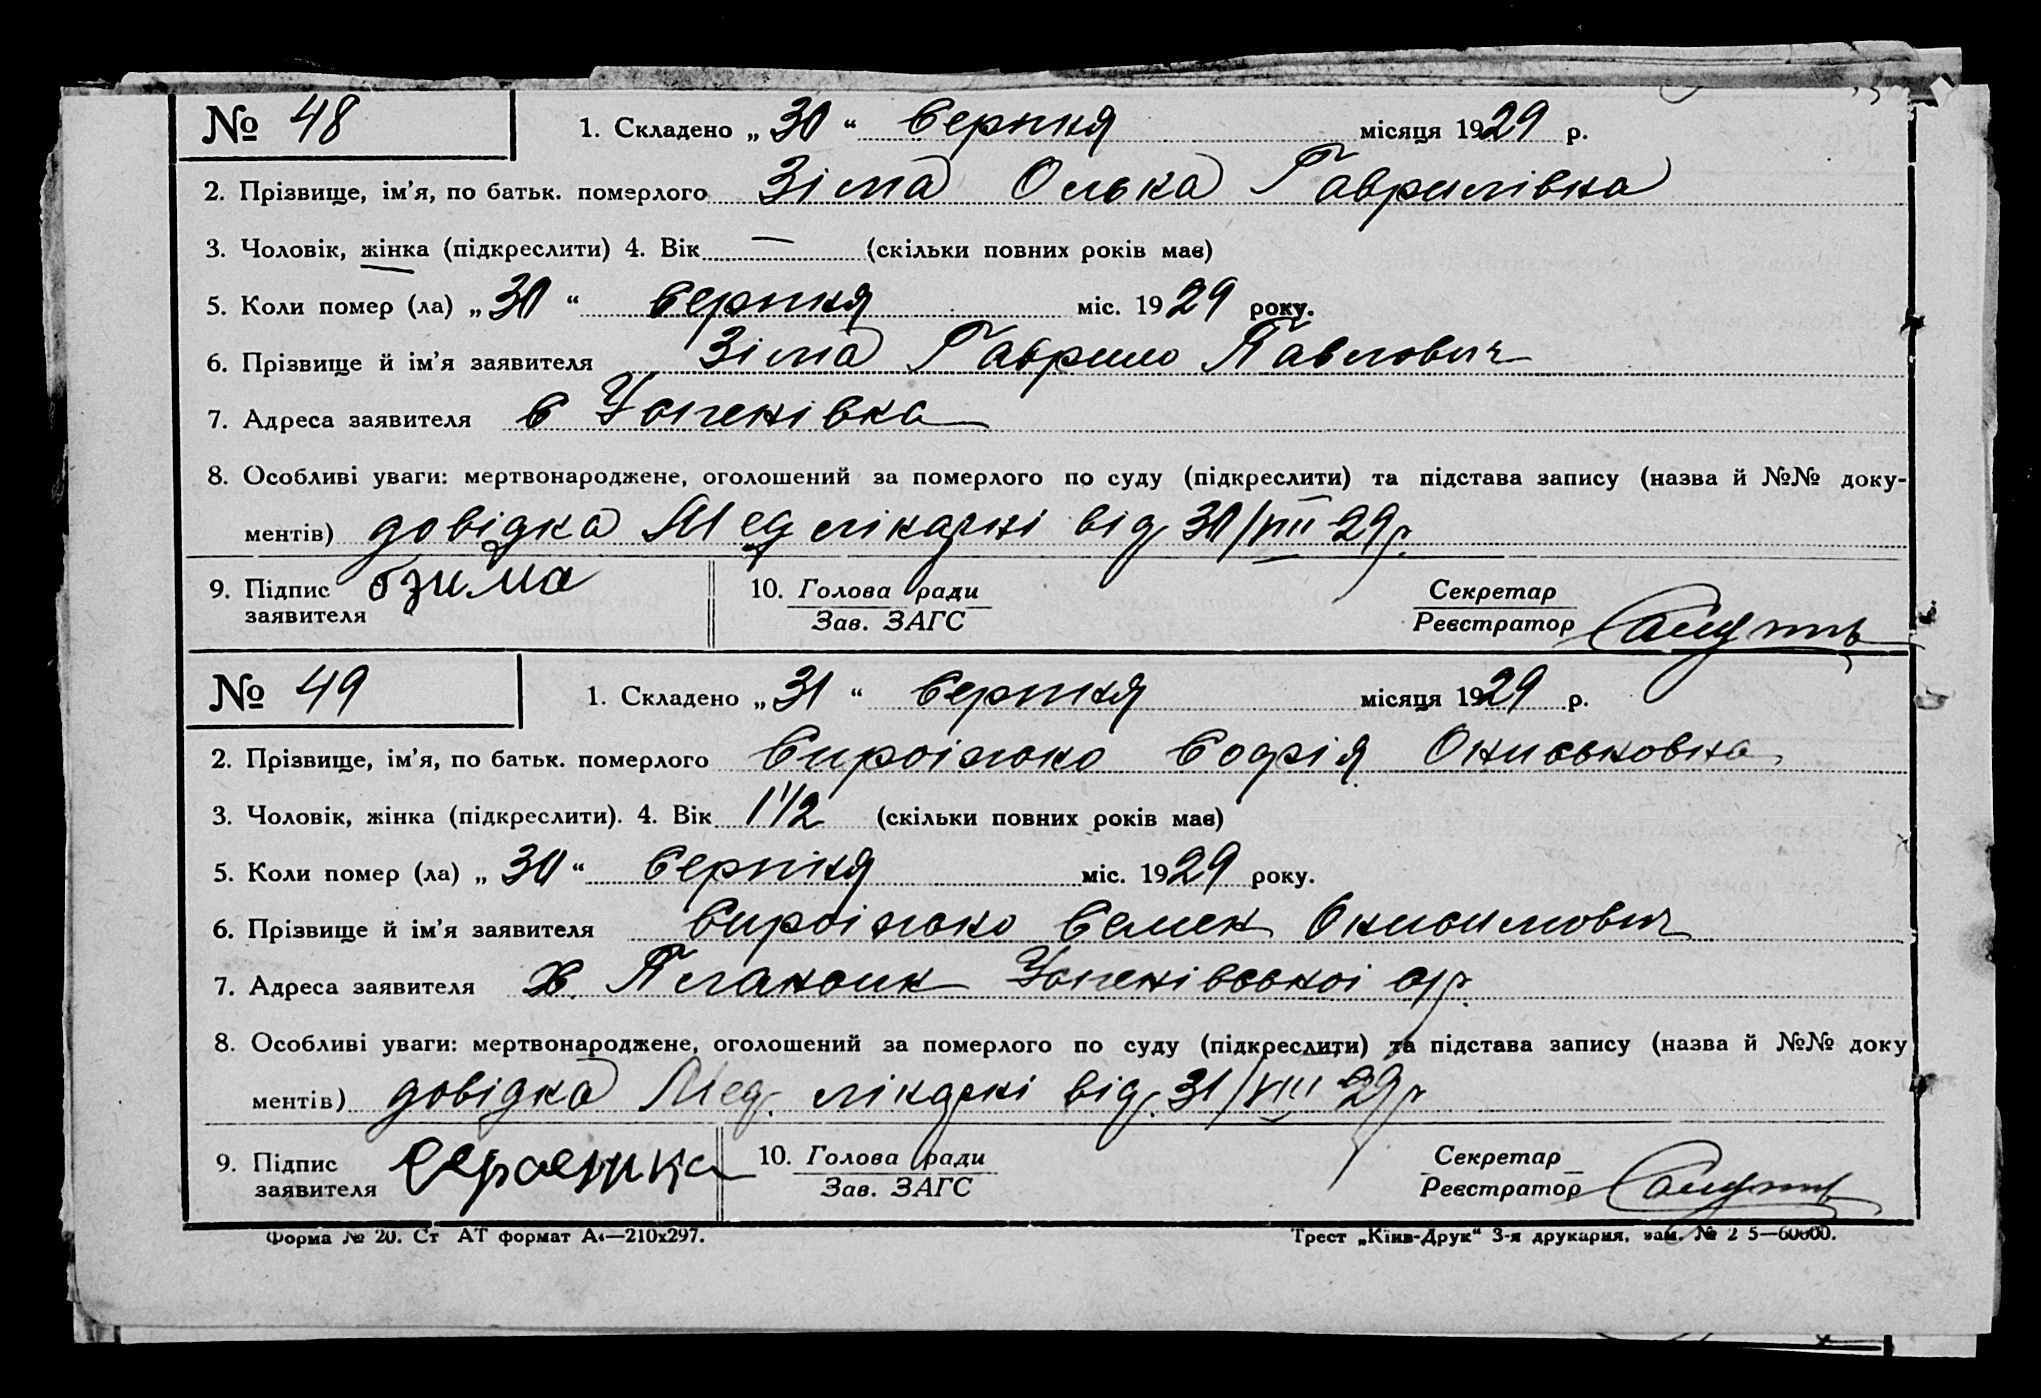 № 48 1. Складено „ 30 “ серпня місяця 1929 р.
2. Прізвище, ім’я, по батьк. померлого Зіма Олька Гаврилівна
3. Чоловік, жінка (підкреслити) 4. Вік — (скільки повних років має)
5. Коли помер (ла) „ 30 “ серпня міс. 1929 року.
6. Прізвище й ім’я заявителя Зіма Гаврило Павлович
7. Адреса заявителя с Успенівка
8. Особливі уваги: мертвонароджене, оголошений за померлого по суду (підкреслити) та підстава запису (назва й №№ доку-
ментів) довідка Мед лікарні від 30/VIII 29р.
9. Підпис 10. Голова ради Секретар
заявителя Зав. ЗАГС Реєстратор
№ 49 1. Складено „ 31 “ серпня місяця 1929 р.
2. Прізвище, ім’я, по батьк. померлого Софія
3. Чоловік, жінка (підкреслити). 4. Вік 1 1/2 (скільки повних років має)
5. Коли помер (ла) „ 30 “ серпня міс. 1929 року.
6. Прізвище й ім’я заявителя Семен Онисимович
7. Адреса заявителя х. Успенівської с/р.
8. Особливі уваги: мертвонароджене, оголошений за померлого по суду (підкреслити) та підстава запису (назва й №№ доку
ментів) довідка Мед. лікарні від. 31/VIII 29р
9. Підпис 10. Голова ради Секретар
заявителя Зав. ЗАГС Реєстратор
Форма № 20. Ст АТ формат А4—210х297. Трест „Київ-Друк“ 3-я друкарня, зам. № 2 5—60000.